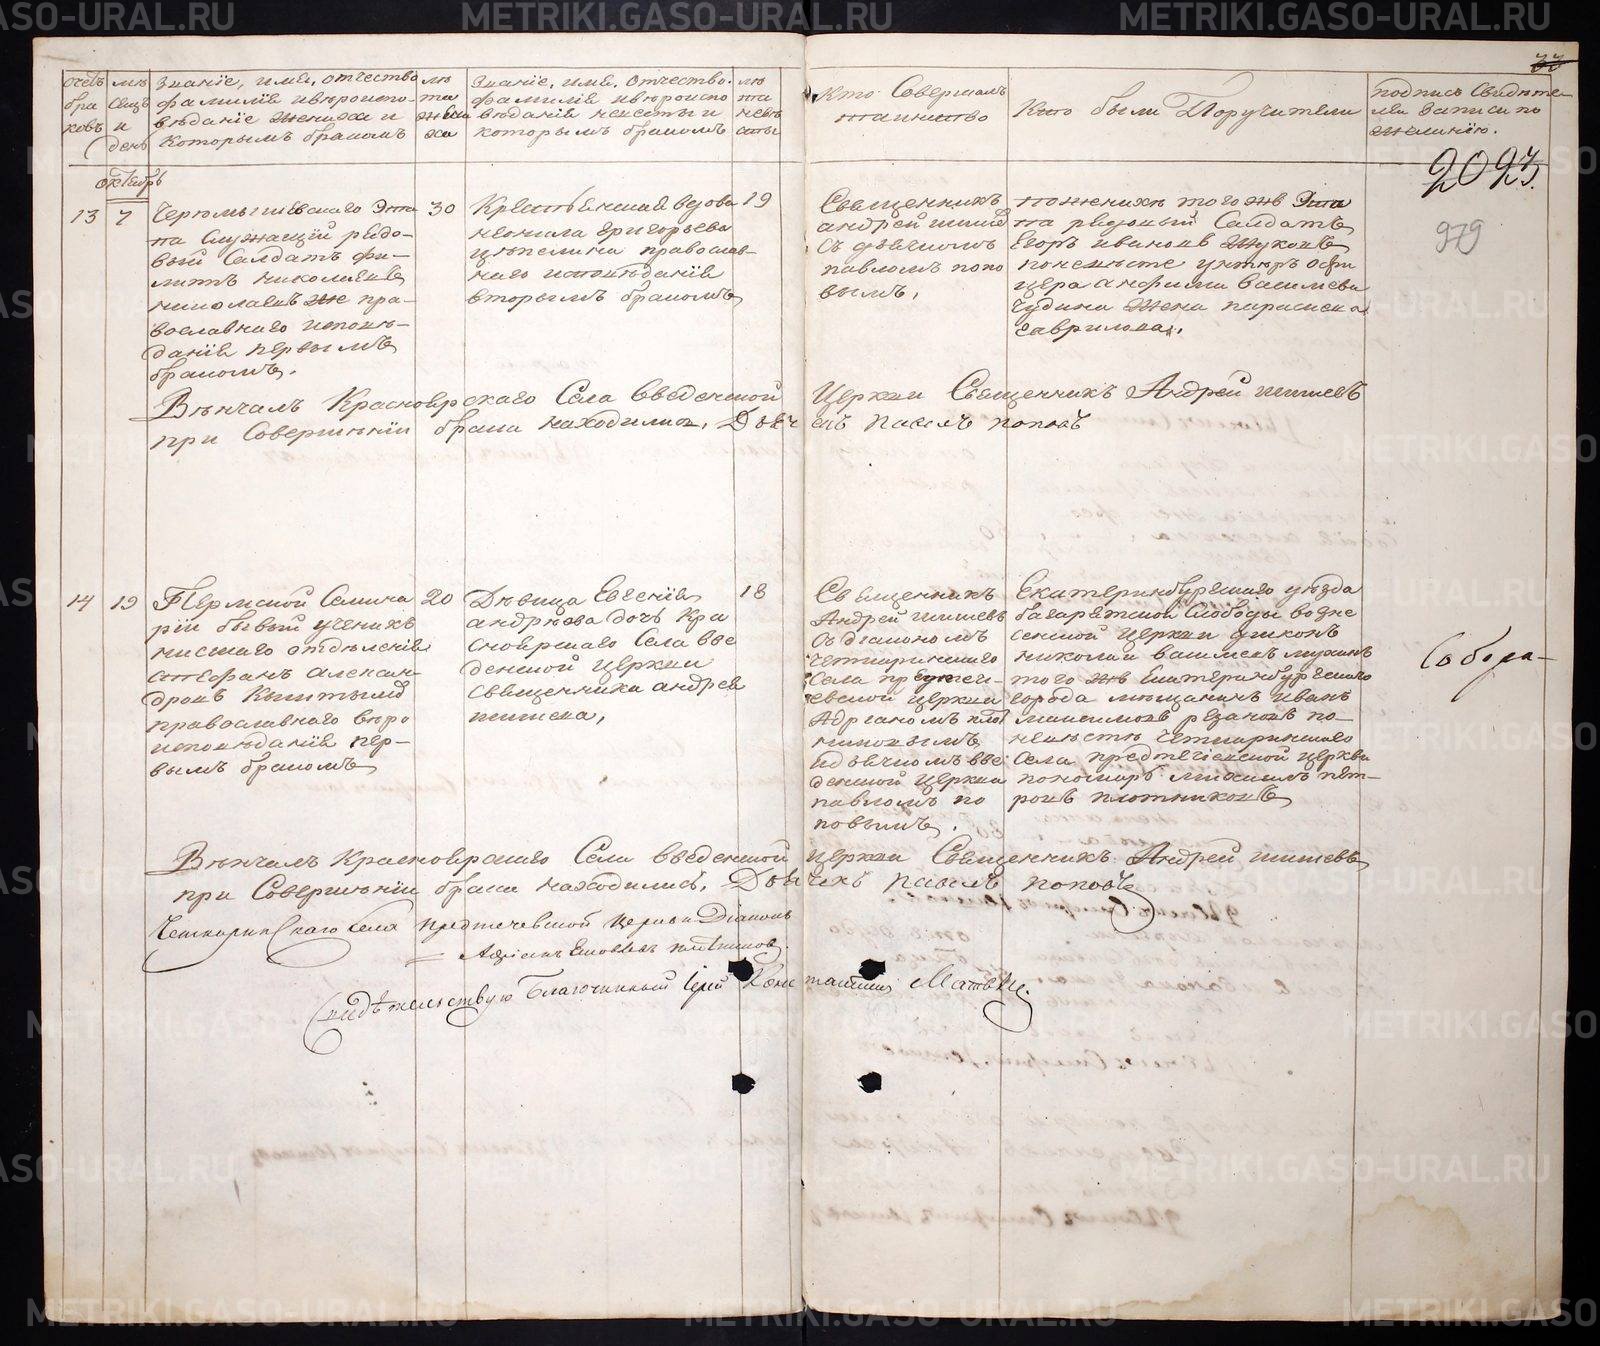 METRIKI.GASO-URAL.RU
33
счетъ браковъ
мѣсяцъ и день
Званіе, имя, отчество
фамилія и вѣроиспо-
вѣданіе жениха и
которымъ бракомъ
лѣта жениха
Званіе, имя, отчество.
фамилія и вѣроиспо
вѣданія невесты и
которымъ бракомъ
лѣта невѣсты
Кто Совершалъ
таинство
Кто были Поручители
подпись Свидѣте
лей записи по
желанію.
октябрь
2093
979
13
7
служащій рядо-
вый Салдатъ Фи-
липъ Николаевъ
же пра-
вославнаго исповѣ-
данія первымъ
бракомъ.
30
Крестьянская вдова
Неонила Григорьева
православ-
наго исповѣданія
вторымъ бракомъ
19
Священникъ
Андрей Шишевъ
съ дьячкомъ
Павломъ Попо
вымъ.
по женихѣ того же Эта
па рядовый Салдатъ
Егоръ Ивановъ Жуковъ
по невѣсте унтеръ офи
цера Анфима Васильева
Чудина жена Парасковья
Гаврилова.
Вѣнчалъ Красноярскаго Села Введенской Церкви Священникъ Андрей Шишевъ
при Совершеніи брака находился, Дьячекъ Павелъ Поповъ
14
19
Пермской Семина
ріи бывый ученикъ
нисшаго отдѣленія
Стефанъ Алексан-
дровъ Кыштымовъ
православнаго вѣро
исповѣданія пер-
вымъ бракомъ
20
Дѣвица Евгенія
Андреева дочь Кра
сноярскаго Села Вве
денской церкви
Священника Андрея
Шишева,
18
Священникъ
Андрей Шишевъ
съ діакономъ
Четкаринскаго
Села Предтечи-
евской церкви
Адріаномъ Плот
никовымъ
и дьячкомъ Вве
денской Церкви
Павломъ По
повымъ.
Екатеринбургскаго уѣзда
Багарятской Слободы Возне
сенской Церкви дьяконъ
Николай Васильевъ
того же Екатеринбургскаго
города мѣщанинъ Иванъ
Максимовъ Рязановъ по
невѣстѣ Четкаринскаго
Села Предтечіевской церкви
пономарь Михаилъ Пет-
ровъ Плотниковъ
Собора-
Вѣнчалъ Красноярскаго Села Введенской Церкви Священникъ Андрей Шишевъ
при Совершеніи брака находились, Дьячекъ Павелъ Поповъ
Четкаринскаго села Предтечевской церкви Діаконъ
Адріанъ Плотниковъ.
Свидѣтельствую Благочинный Іерей Константинъ